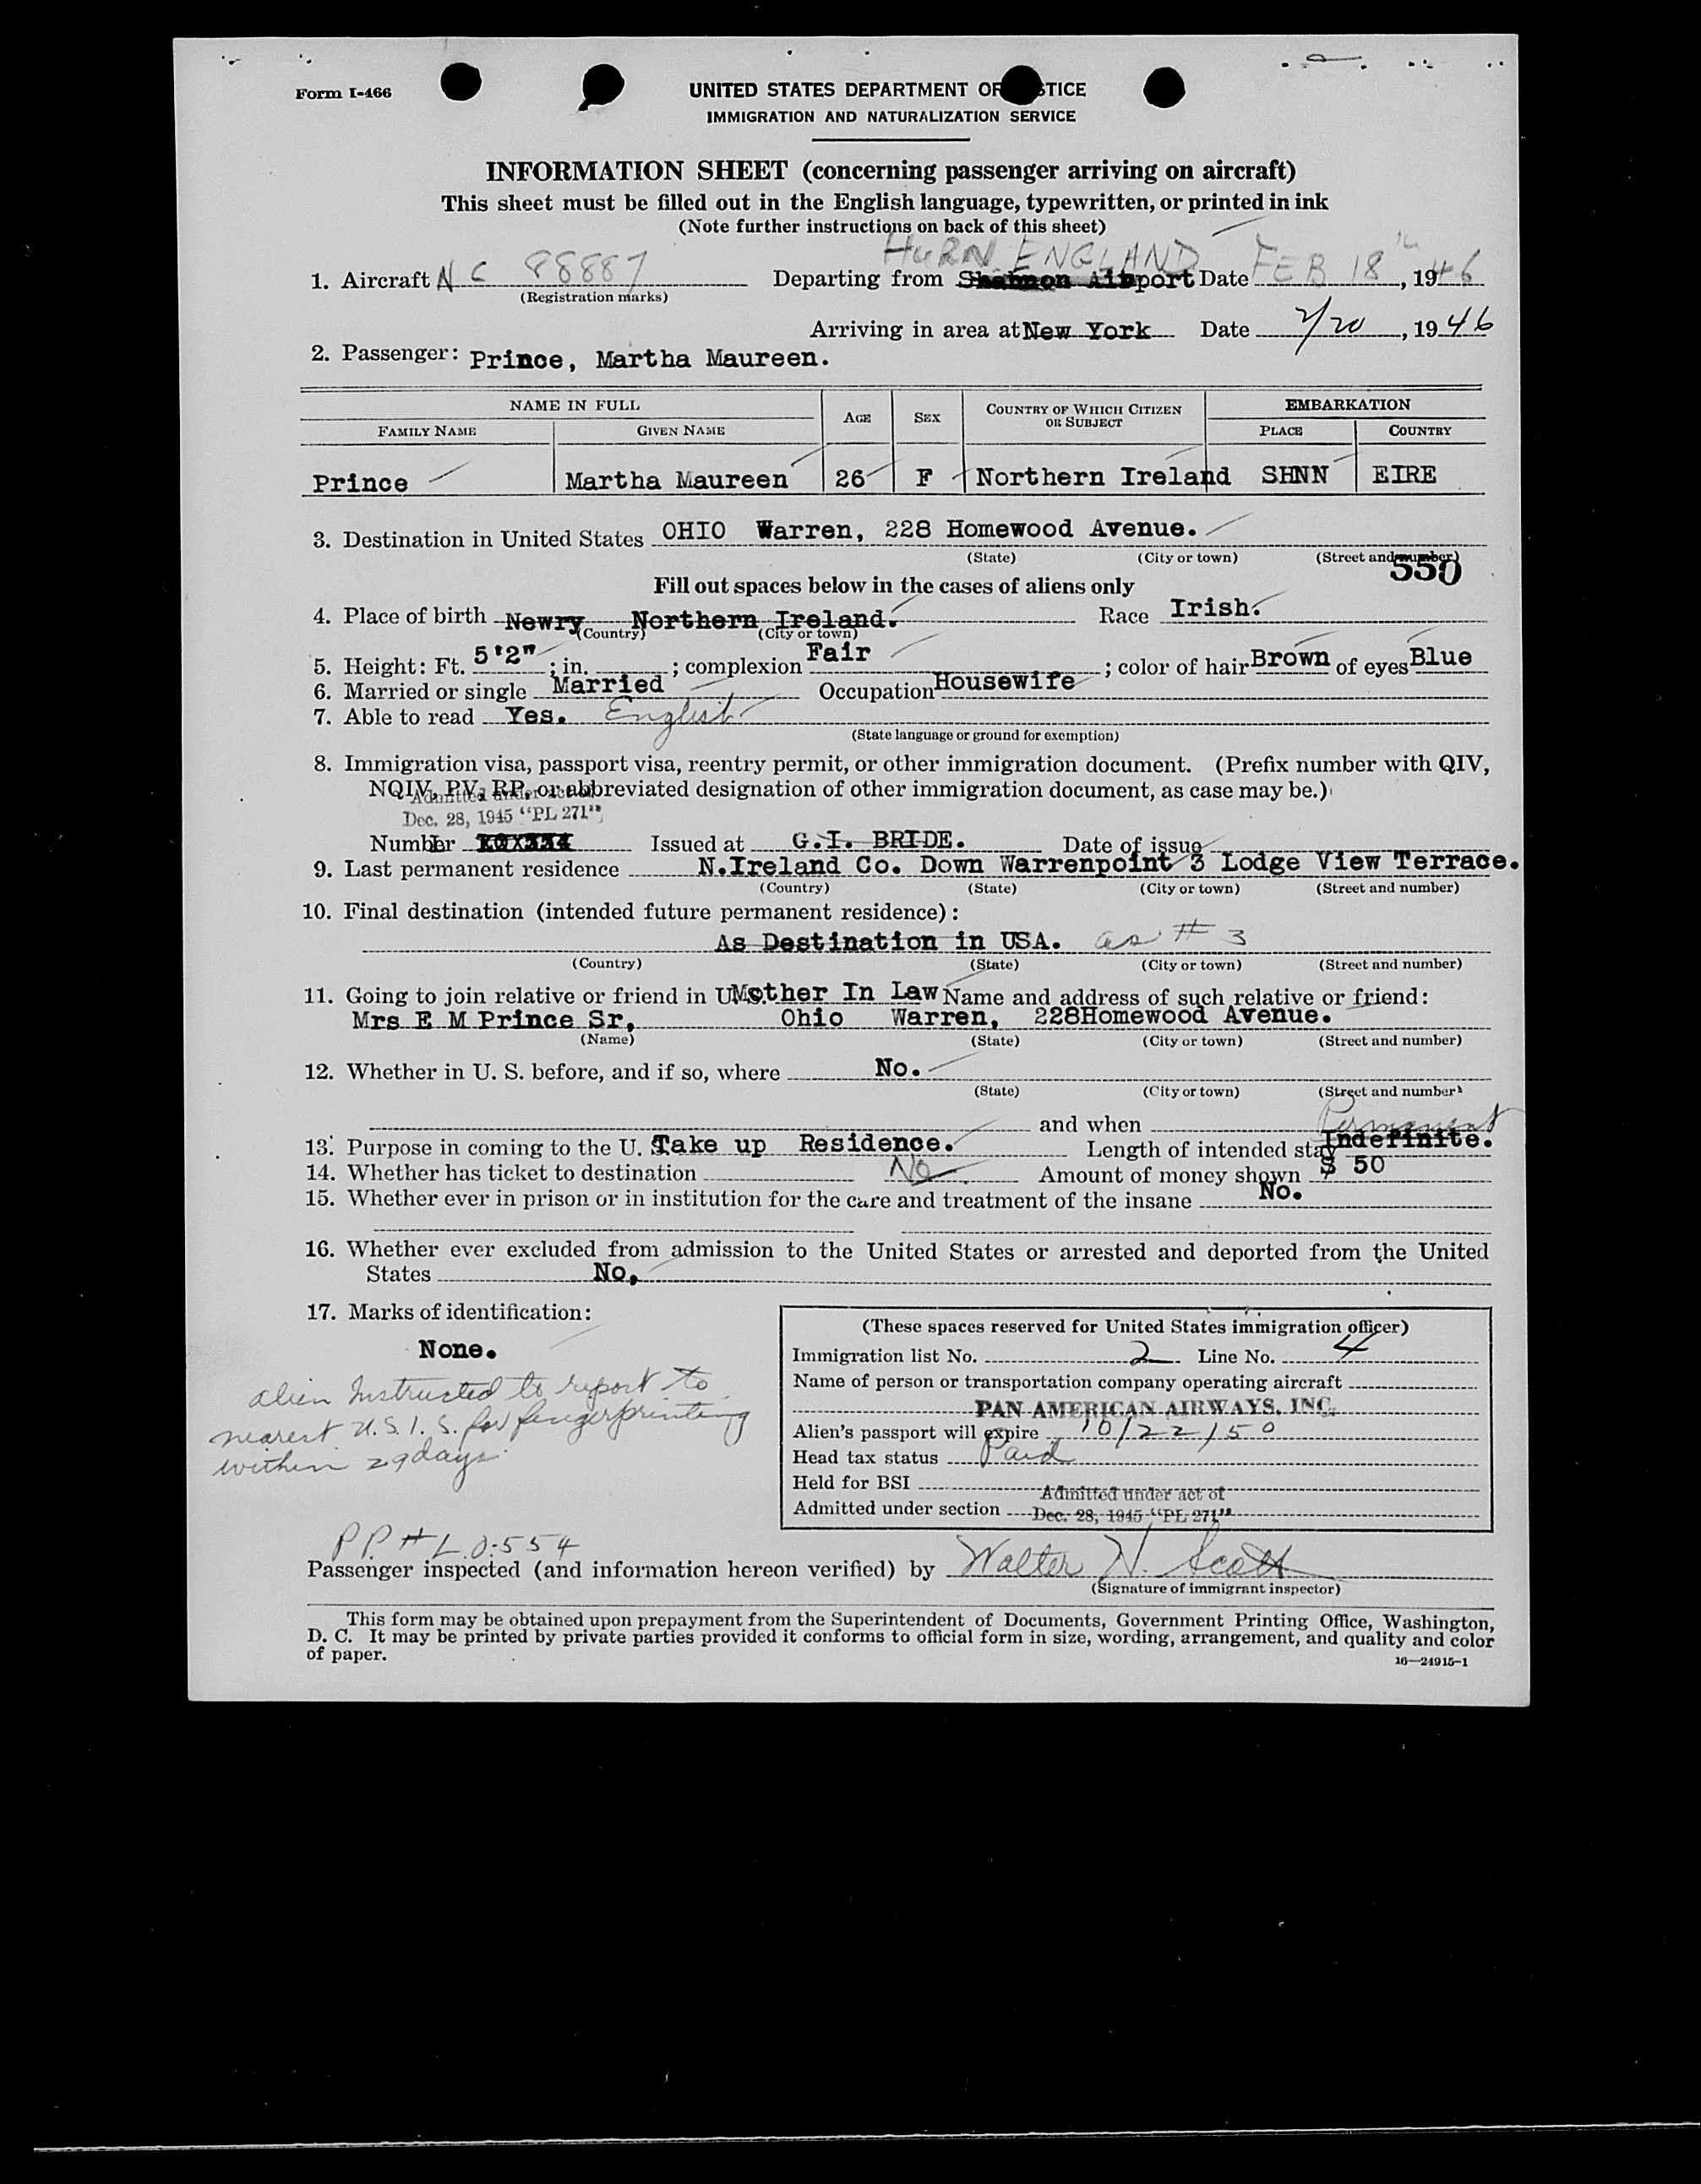 Form I-466
UNITED STATES DEPARTMENT OF TICE
IMMIGRATION AND NATURALIZATION SERVICE
INFORMATION SHEET (concerning passenger arriving on aircraft)
This sheet must be filled out in the English language, typewritten, or printed in ink
(Note further instructions on back of this sheet)
HURN ENGLAND
1. Aircraft N C 88887 Departing from Shannon Airport Date FEB 18 , 19 46
(Registration marks)
Arriving in area at New York Date 2/20 , 19 46
2. Passenger: Prince, Martha Maureen.
NAME IN FULL AGE SEX COUNTRY OF WHICH CITIZEN OR SUBJECT EMBARKATION
FAMILY NAME GIVEN NAME PLACE COUNTRY
Prince Martha Maureen 26 F Northern Ireland SHNN EIRE
3. Destination in United States OHIO Warren, 228 Homewood Avenue.
(State) (City or town) (Street and number)
550
Fill out spaces below in the cases of aliens only
4. Place of birth Newry Northern Ireland. Race Irish.
(Country) (City or town)
5. Height: Ft. 5'2" ; in. ; complexion Fair ; color of hair Brown of eyes Blue
6. Married or single Married Occupation Housewife
7. Able to read Yes. English
(State language or ground for exemption)
8. Immigration visa, passport visa, reentry permit, or other immigration document. (Prefix number with QIV,
NQIV, PV, RP, or abbreviated designation of other immigration document, as case may be.)
Admitted under act of
Dec. 28, 1945 "PL 271"
Number Issued at G.I. BRIDE. Date of issue
9. Last permanent residence N.Ireland Co. Down Warrenpoint 3 Lodge View Terrace.
(Country) (State) (City or town) (Street and number)
10. Final destination (intended future permanent residence):
As Destination in USA. as # 3
(Country) (State) (City or town) (Street and number)
11. Going to join relative or friend in U.S. Mother In Law Name and address of such relative or friend:
Mrs E M Prince Sr, Ohio Warren, 228Homewood Avenue.
(Name) (State) (City or town) (Street and number)
12. Whether in U. S. before, and if so, where No.
(State) (City or town) (Street and number)
and when
Permanent
13. Purpose in coming to the U. S. Take up Residence. Length of intended stay Indefinite.
14. Whether has ticket to destination No Amount of money shown $ 50
15. Whether ever in prison or in institution for the care and treatment of the insane No.
16. Whether ever excluded from admission to the United States or arrested and deported from the United
States No.
17. Marks of identification:
None.
alien Instructed to report to
nearest U.S.I.S. for fingerprinting
within 29 days
(These spaces reserved for United States immigration officer)
Immigration list No. 2 Line No. 4
Name of person or transportation company operating aircraft
PAN AMERICAN AIRWAYS, INC.
Alien's passport will expire 10/22/50
Head tax status Paid
Held for BSI
Admitted under act of
Admitted under section Dec. 28, 1945 "PL 271"
PP # L.0.554
Passenger inspected (and information hereon verified) by Walter H. Scott
(Signature of immigrant inspector)
This form may be obtained upon prepayment from the Superintendent of Documents, Government Printing Office, Washington,
D. C. It may be printed by private parties provided it conforms to official form in size, wording, arrangement, and quality and color
of paper.
16—24915-1